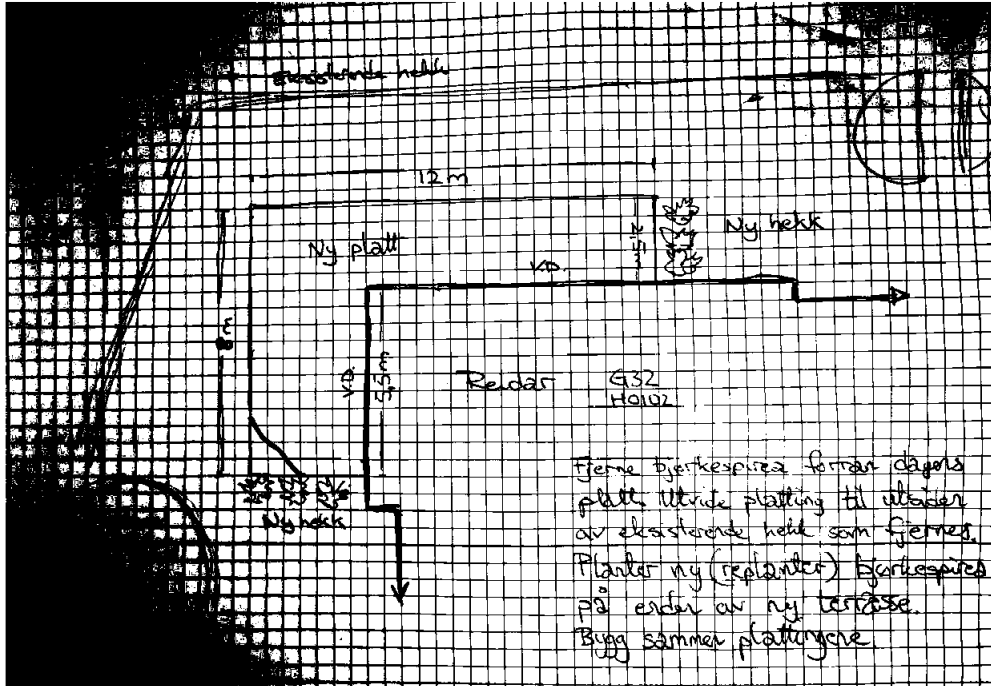 Eksisterende hekk
12 m
Ny platt
2,5
Ny hekk
V.D.
8 m
V.D.
5,5 m
Reidar
G32
H0102
Ny hekk
Fjerne bjørkespirea forran dagens
platt. Utvide platting til utsiden
av eksisterende hekk som fjernes.
Planter ny (replanter) bjørkespirea
på ender av ny terrasse.
Bygg sammen plattingene.